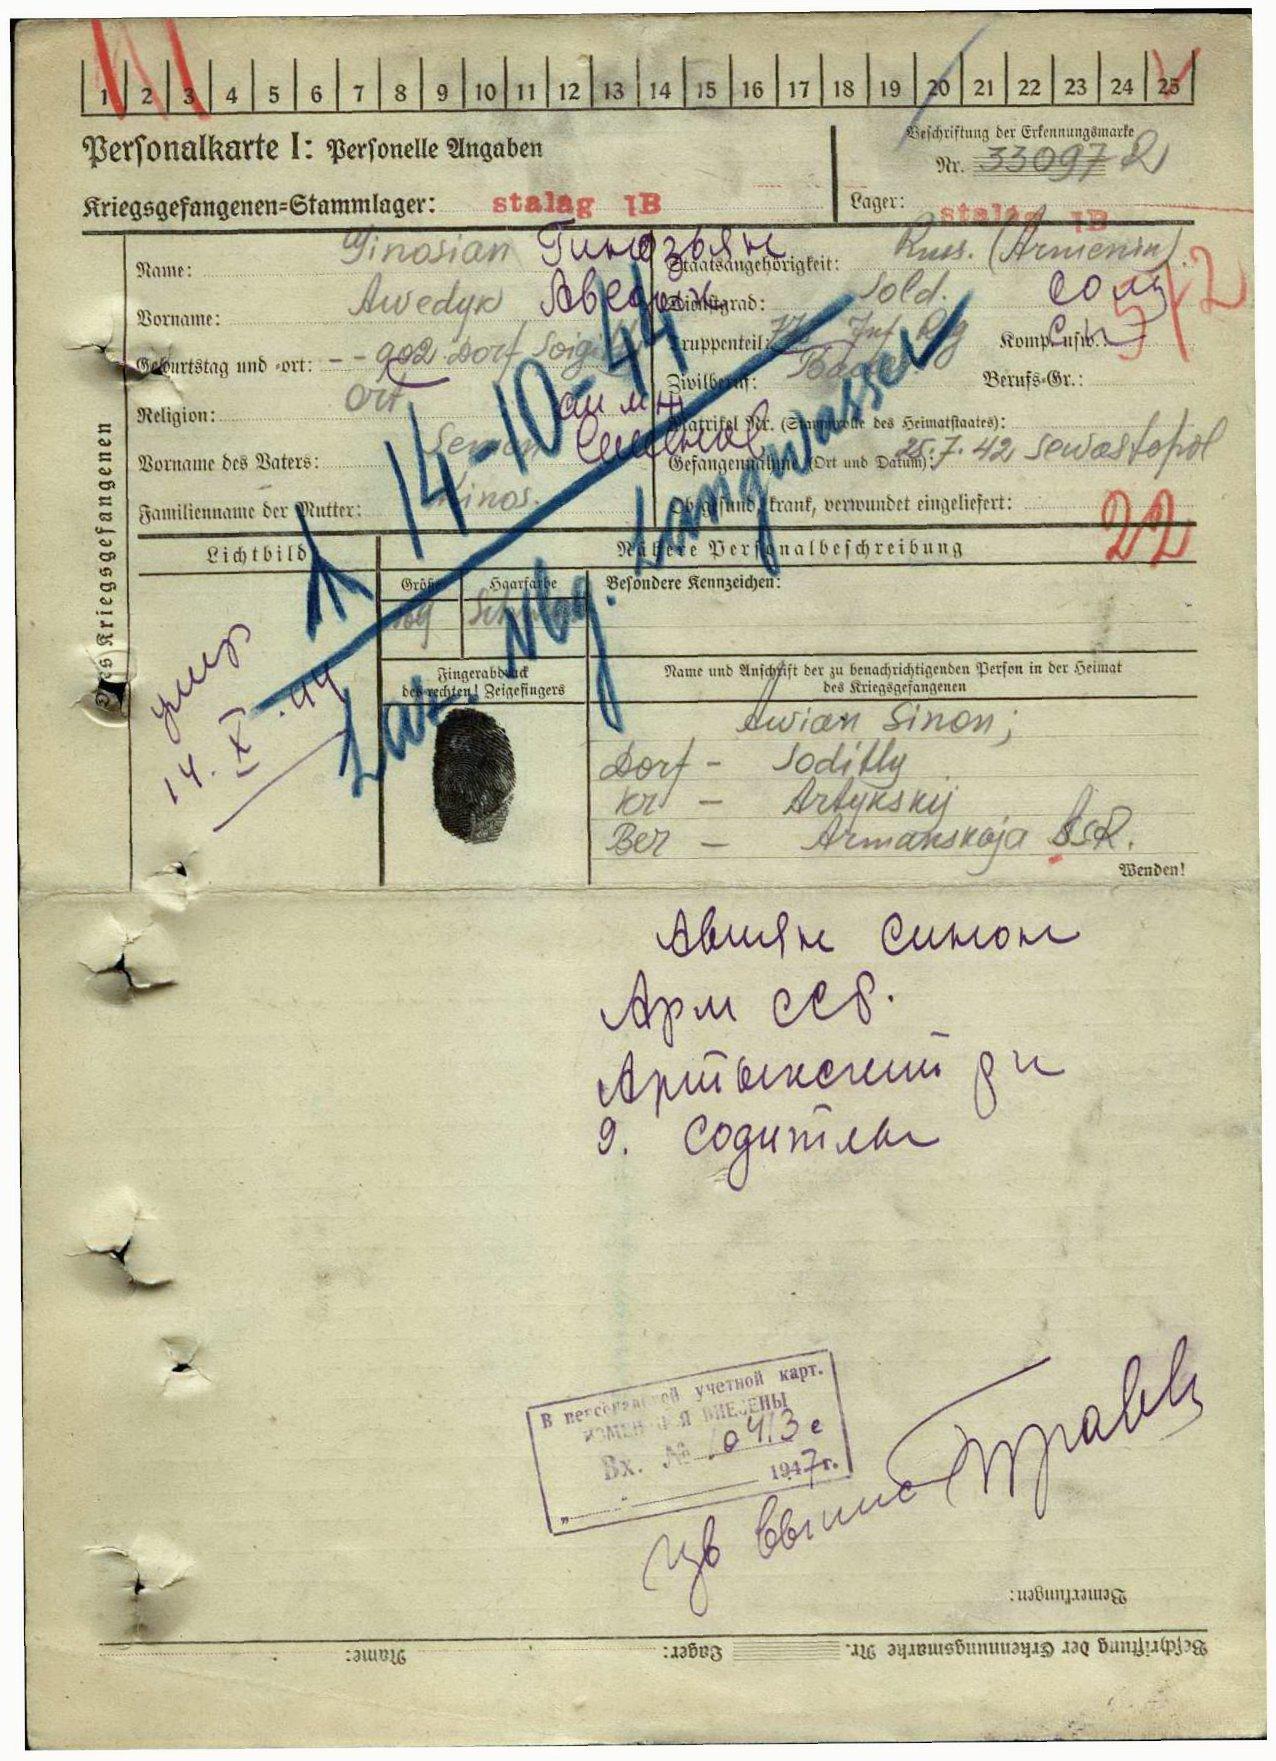 1 2 3 4 5 6 7 8 9 10 11 12 13 14 15 16 17 18 19 20 21 22 23 24 25
Personalkarte I: Personelle Angaben
Beschriftung der Erkennungsmarke
Nr. 33097
Kriegsgefangenen=Stammlager: stalag IB
Lager: stalag IB
Des Kriegsgefangenen
Name: Ginosian
Vorname: Awedyk
Geburtstag und =ort: - - 902 Dorf
Religion: Ort
Vorname des Vaters: Semon
Familienname der Mutter: Kinos.
Staatsangehörigkeit: Russ. (Armenin)
Dienstgrad: Sold. солд
Truppenteil: Inf Reg Komp. usw.:
Zivilberuf: Berufs=Gr.:
Matrikel Nr. (Stammrolle des Heimatstaates):
Gefangennahme (Ort und Datum): 25.7.42 Sewastopol
Ob gesund, krank, verwundet eingeliefert:
22
14-10-44
Laz. Nbg. Langwasser
Lichtbild
Nähere Personalbeschreibung
Größe
Haarfarbe
Besondere Kennzeichen:
Fingerabdruck
des rechten! Zeigefingers
Name und Anschrift der zu benachrichtigenden Person in der Heimat
des Kriegsgefangenen
умер
14. X. 44
Awian Sinon;
Dorf - Soditly
Kr - Artykskij
Ber - Armanskaja SSR.
Wenden!
Авиян Синон
Арм ССР.
Артыкский р н
д. Содитлы
В персональной учетной карт.
ИЗМЕНЕНИЯ ВНЕСЕНЫ
Вх. № 0413 с
1947 г.
Bemerkungen:
Beschriftung der Erkennungsmarke Nr. Lager: Name: